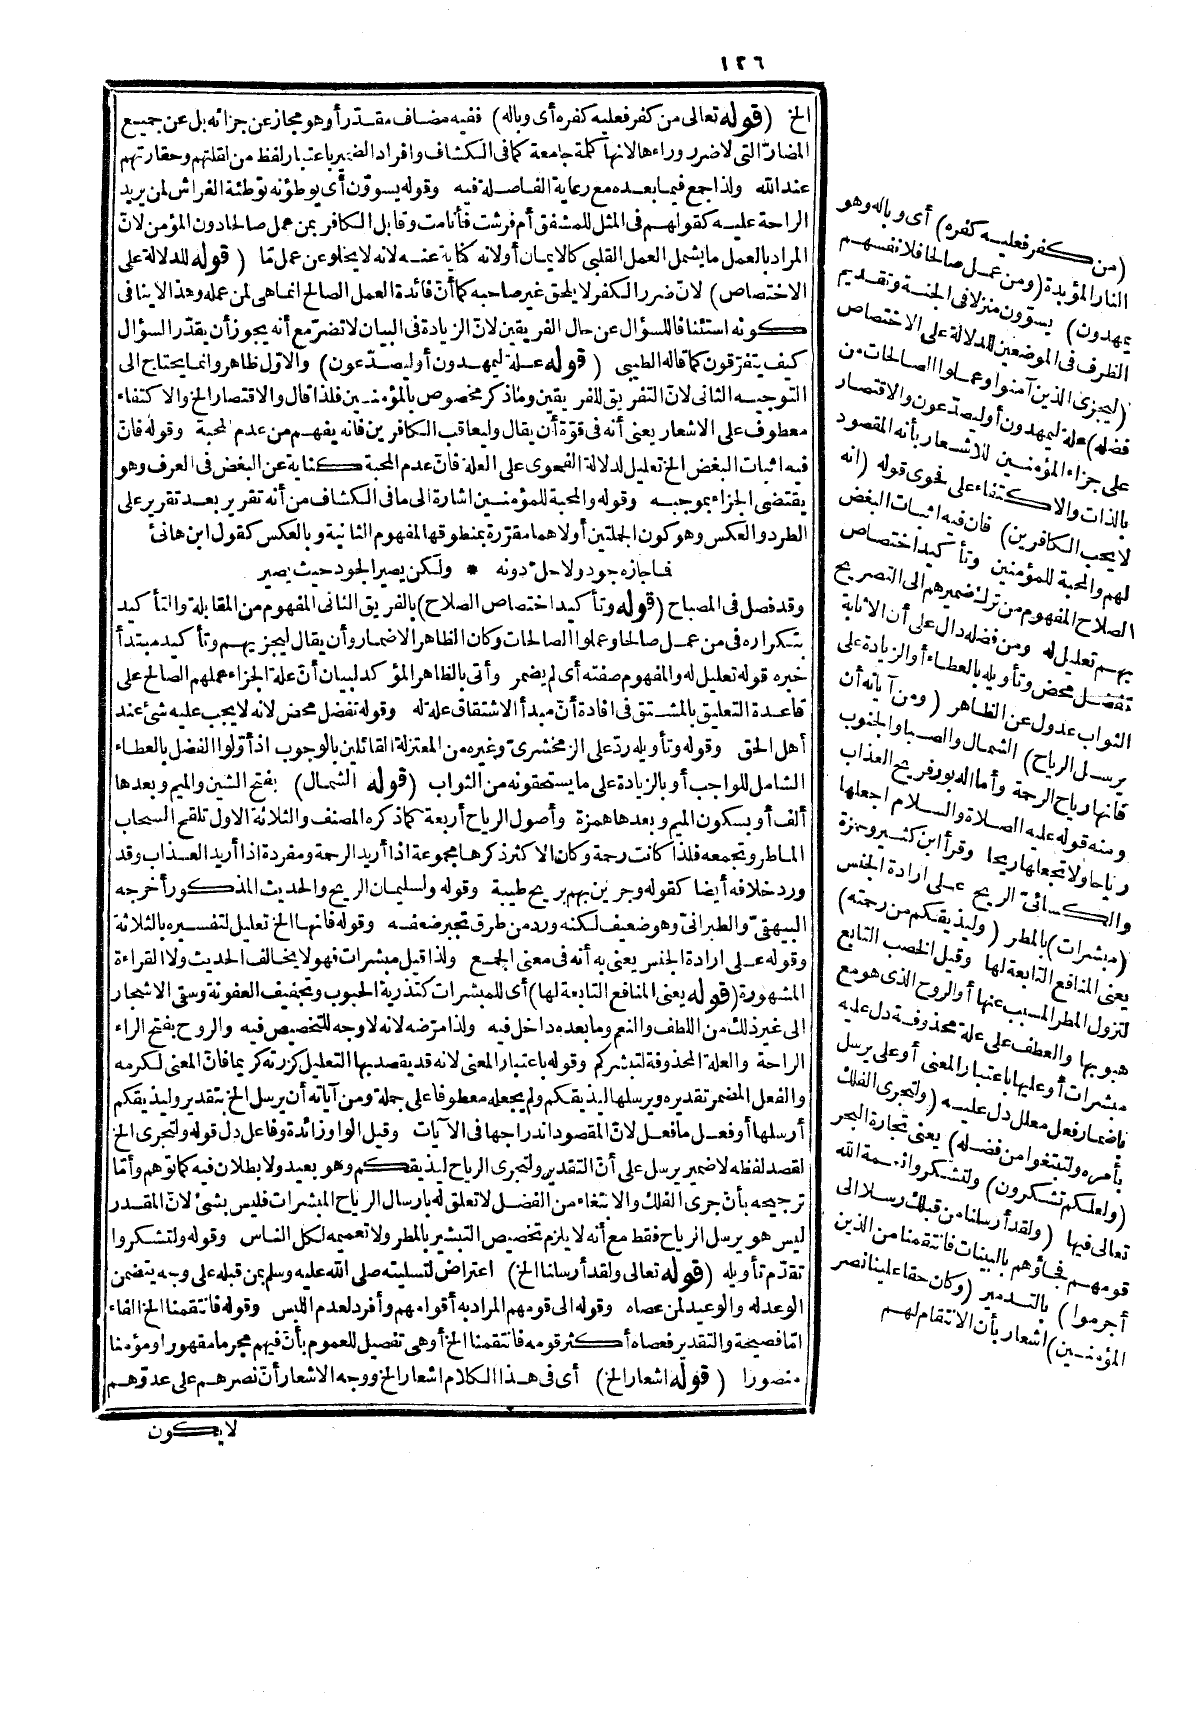 ١٢٦
الخ (قوله تعالى من كفر فعليه كفره أى وباله) ففيه مضاف مقدّر أو هو مجاز عن جزائه بل عن جميع
المضارّ التى لا ضرر وراءها لانها كلمة جامعة كما فى الكشاف وافراد الضمير باعتبار لفظ من لقلتهم وحقارتهم
عند الله ولذا جمع فيما بعده مع رعاية الفاصلة فيه وقوله يسوّون أى يوطؤنه توطئة الفراش لمن يريد
الراحة عليه كقولهم فى المثل للمشفق أم فرشت فأنامت وقابل الكافر بمن عمل صالحا دون المؤمن لانّ
المراد بالعمل ما يشمل العمل القلبى كالايمان أو لانه كناية عنه لانه لا يخلو عن عمل مّا (قوله للدلالة على
الاختصاص) لانّ ضرر الكفر لا يلحق غير صاحبه كما أنّ فائدة العمل الصالح انما هى لمن عمله وهذا لا ينافى
كونه استئنافا للسؤال عن حال الفريقين لانّ الزيادة فى البيان لا تضرّ مع أنه يجوز أن يقدّر السؤال
كيف يتفرّقون كما قاله الطيبى (قوله علة ليمهدون أو ليصدّعون) والاوّل ظاهر وانما يحتاج الى
التوجيه الثانى لانّ التفريق للفريقين وما ذكر مخصوص بالمؤمنين فلذا قال والاقتصار الخ والاكتفاء
معطوف على الاشعار يعنى أنه فى قوّة أن يقال وليعاقب الكافرين فانه يفهم من عدم المحبة وقوله فانّ
فيه اثبات البغض الخ تعليل لدلالة الفحوى على العلة فانّ عدم المحبة كناية عن البغض فى العرف وهو
يقتضى الجزاء بموجبه وقوله والمحبة للمؤمنين اشارة الى ما فى الكشاف من أنه تقرير بعد تقرير على
الطرد والعكس وهو كون الجملتين أولاهما مقرّرة بمنطوقها لمفهوم الثانية وبالعكس كقول ابن هانئ
فما جازه جود ولا حل دونه * ولكن يصير الجود حيث يصير
وقد فصل فى المصباح (قوله وتأكيد اختصاص الصلاح) بالفريق الثانى المفهوم من المقابلة والتأكيد
بتكراره فى من عمل صالحا وعملوا الصالحات وكان الظاهر الاضمار وأن يقال ليجزيهم وتأكيد مبتدأ
خبره قوله تعليل له والمفهوم صفته أى لم يضمر وأتى بالظاهر المؤكد لبيان أنّ علة الجزاء عملهم الصالح على
قاعدة التعليق بالمشتق فى افادة أنّ مبدأ الاشتقاق علة له وقوله تفضل محض لانه لا يجب عليه شئ عند
أهل الحق وقوله وتأويله ردّ على الزمخشرىّ وغيره من المعتزلة القائلين بالوجوب اذ أولوا الفضل بالعطاء
الشامل للواجب أو بالزيادة على ما يستحقونه من الثواب (قوله الشمال) بفتح الشين والميم وبعدها
ألف أو بسكون الميم وبعدها همزة وأصول الرياح أربعة كما ذكره المصنف والثلاثة الاول تلقح السحاب
الماطر وتجمعه فلذا كانت رحمة وكان الاكثر ذكرها مجموعة اذا أريد الرحمة ومفردة اذا أريد العذاب وقد
ورد خلافه أيضا كقوله وجرين بهم بريح طيبة وقوله ولسليمان الريح والحديث المذكور أخرجه
البيهقىّ والطبرانىّ وهو ضعيف لكنه ورد من طرق تجبر ضعفه وقوله فانها الخ تعليل لتفسيره بالثلاثة
وقوله على ارادة الجنس يعنى به أنه فى معنى الجمع ولذا قيل مبشرات فهو لا يخالف الحديث ولا القراءة
المشهورة (قوله يعنى المنافع التابعة لها) أى للمبشرات كتذرية الحبوب وتجفيف العفونة وسقى الاشجار
الى غير ذلك من اللطف والنعم وما بعده داخل فيه ولذا مرّضه لانه لا وجه للتخصيص فيه والروح بفتح الراء
الراحة والعلة المحذوفة لتبشركم وقوله باعتبار المعنى لانه قد يقصد بها التعليل كزرته كريما فانّ المعنى لكرمه
والفعل المضمر تقديره ويرسلها ليذيقكم ولم يجعله معطوفا على جملة ومن آياته أن يرسل الخ بتقدير وليذيقكم
أرسلها أو فعل ما فعل لانّ المقصود اندراجها فى الآيات وقيل الواو زائدة وفاعل دل قوله ولتجرى الخ
لقصد لفظه لا ضمير يرسل على أنّ التقدير ولتجرى الرياح ليذيقكم وهو بعيد ولا بطلان فيه كما توهم وأمّا
ترجيحه بأنّ جرى الفلك والابتغاء من الفضل لا تعلق له بارسال الرياح المبشرات فليس بشئ لانّ المقدر
ليس هو يرسل الرياح فقط مع أنه لا يلزم تخصيص التبشير بالمطر ولا تعميمه لكل الناس وقوله ولتشكروا
تقدّم تأويله (قوله تعالى ولقد أرسلنا الخ) اعتراض لتسليته صلى الله عليه وسلم بمن قبله على وجه يتضمن
الوعد له والوعيد لمن عصاه وقوله الى قومهم المراد به أقوامهم وأفرد لعدم اللبس وقوله فانتقمنا الخ الفاء
امّا فصيحة والتقدير فعصاه أكثر قومه فانتقمنا الخ أو هى تفصيل للعموم بأنّ فيهم مجرما مقهورا ومؤمنا
منصورا (قوله اشعار الخ) أى فى هذا الكلام اشعار الخ ووجه الاشعار أنّ نصرهم على عدوّهم
لا يكون
(من كفر فعليه كفره) أى وباله وهو
النار المؤبدة (ومن عمل صالحا فلانفسهم
يمهدون) يسوّون منزلا فى الجنة وتقديم
الظرف فى الموضعين للدلالة على الاختصاص
(ليجزى الذين آمنوا وعملوا الصالحات من
فضله) علة ليمهدون أو ليصدّعون والاقتصار
على جزاء المؤمنين للاشعار بأنه المقصود
بالذات والاكتفاء على فحوى قوله (انه
لا يحب الكافرين) فان فيه اثبات البغض
لهم والمحبة للمؤمنين وتأكيد اختصاص
الصلاح المفهوم من ترك ضميرهم الى التصريح
بهم تعليل له ومن فضله دال على أن الاثابة
تفضل محض وتأويله بالعطاء أو الزيادة على
الثواب عدول عن الظاهر (ومن آياته أن
يرسل الرياح) الشمال والصبا والجنوب
فانها رياح الرحمة وأما الدبور فريح العذاب
ومنه قوله عليه الصلاة والسلام اجعلها
رياحا ولا تجعلها ريحا وقرأ ابن كثير وحمزة
والكسائىّ الريح على ارادة الجنس
(مبشرات) بالمطر (وليذيقكم من رحمته)
يعنى المنافع التابعة لها وقيل الخصب التابع
لنزول المطر المسبب عنها أو الروح الذى هو مع
هبوبها والعطف على علة محذوفة دل عليه
مبشرات أو عليها باعتبار المعنى أو على يرسل
باضمار فعل معلل دل عليه (ولتجرى الفلك
بأمره ولتبتغوا من فضله) يعنى تجارة البحر
(ولعلكم تشكرون) ولتشكروا نعمة الله
تعالى فيها (ولقد أرسلنا من قبلك رسلا الى
قومهم فجاؤهم بالبينات فانتقمنا من الذين
أجرموا) بالتدمير (وكان حقا علينا نصر
المؤمنين) اشعار بأن الانتقام لهم